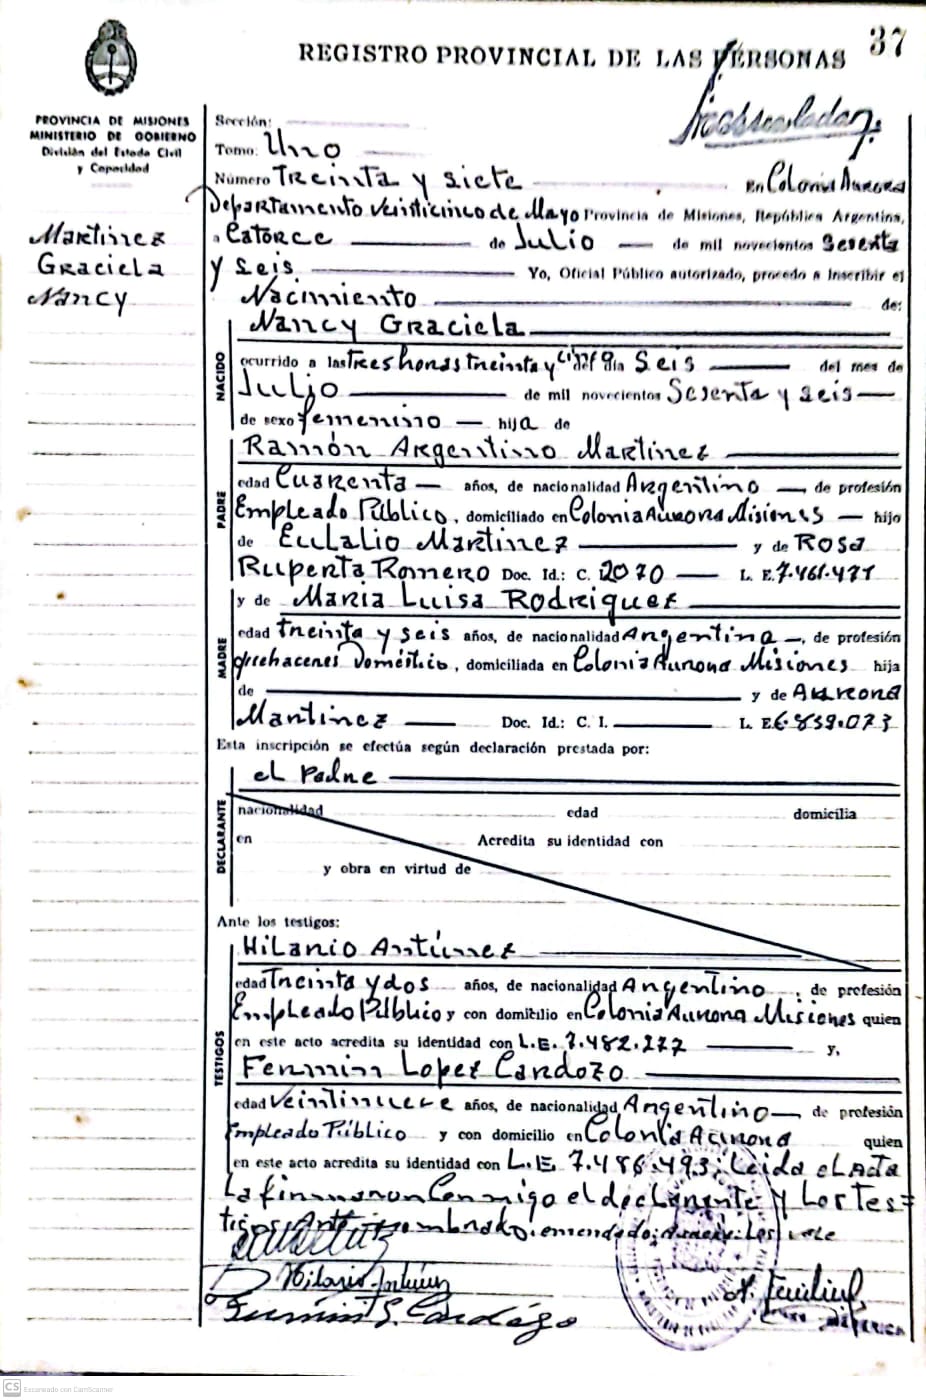 37
REGISTRO PROVINCIAL DE LAS PERSONAS
PROVINCIA DE MISIONES
MINISTERIO DE GOBIERNO
División del Estado Civil
y Capacidad
Martinez
Graciela
Nancy
Sección:
Tomo: Uno
Número Treinta y siete En Colonia Aurora
Departamento Veinticinco de Mayo Provincia de Misiones, República Argentina,
a Catorce de Julio de mil novecientos Sesenta
y Seis Yo, Oficial Público autorizado, procedo a inscribir el
Nacimiento de:
NACIDO
Nancy Graciela
ocurrido a las tres horas treinta y del día Seis del mes de
Julio de mil novecientos Sesenta y seis
de sexo femenino hija de
PADRE
Ramón Argentino Martinez
edad Cuarenta años, de nacionalidad Argentino, de profesión
Empleado Público, domiciliado en Colonia Aurora Misiones hijo
de Eulalio Martinez y de Rosa
Ruperta Romero Doc. Id.: C. 2070 L. E. 7.461.471
MADRE
y de Maria Luisa Rodriguez
edad treinta y seis años, de nacionalidad Argentina, de profesión
quehaceres Doméstico, domiciliada en Colonia Aurora Misiones hija
de y de Aurora
Martinez Doc. Id.: C. I. L. E. 6.839.073
Esta inscripción se efectúa según declaración prestada por:
DECLARANTE
el Padre
nacionalidad edad domicilia
en Acredita su identidad con
y obra en virtud de
Ante los testigos:
TESTIGOS
Hilario Antúnez
edad Treinta y dos años, de nacionalidad Argentino, de profesión
Empleado Público y con domicilio en Colonia Aurora Misiones quien
en este acto acredita su identidad con L.E. 7.482.277 y,
Fermin Lopez Cardozo
edad Veintinueve años, de nacionalidad Argentino, de profesión
Empleado Público y con domicilio en Colonia Aurora quien
en este acto acredita su identidad con L.E. 7.486.493; Leida el Acta
La firmaron Conmigo el declarante y Los Tes=
tigos Ante nombrado: enmendado: vale
Hilario Antúnez
Fermin Cardózo
CS Escaneado con CamScanner